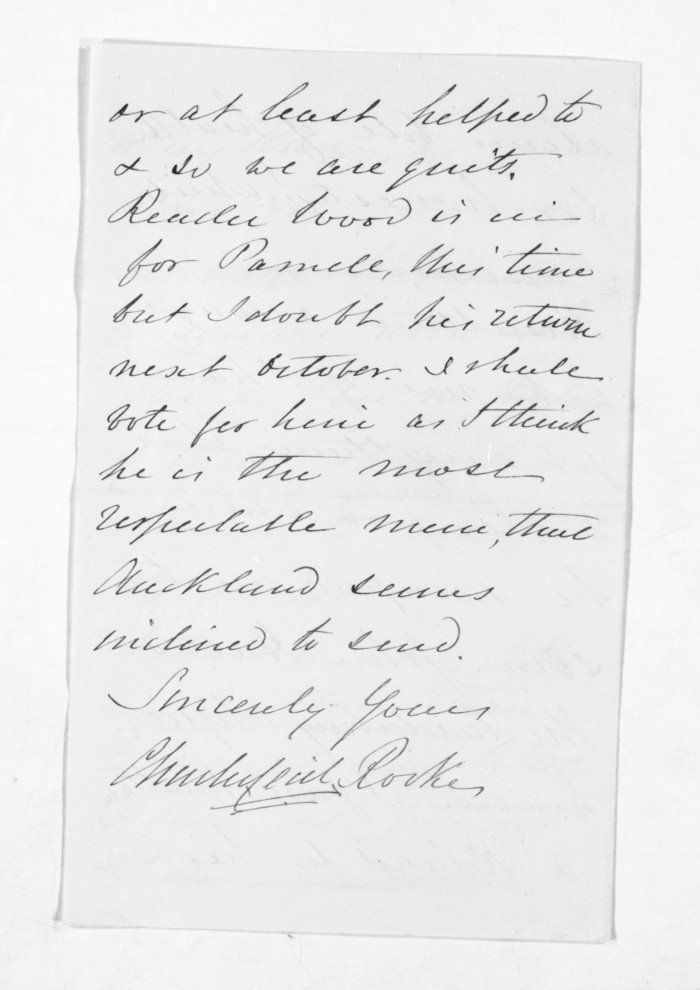 or at least helped to
& so we are quits.
Reader Wood is in
for Parnell, this time
but I doubt his return
next October. I shall
vote for him as I think
he is the most
respectable man, that
Auckland seems
inclined to send.
Sincerely Yours
Rookes